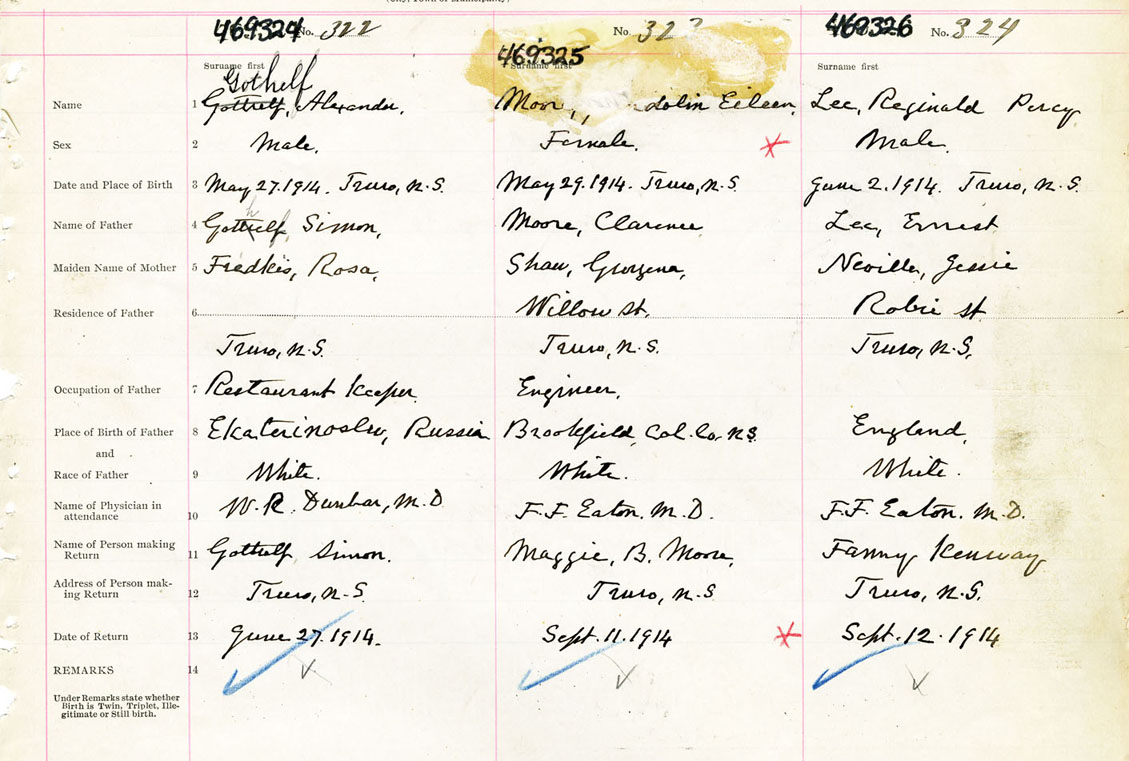 (City, Town or Municipality)
469324 No. 322
469325 No. 32
469326 No. 324
Surname first Surname first Surname first
Gothelf
Name 1 Gottrelf, Alexander, Moor dolin Eileen, Lee, Reginald Percy
Sex 2 Male. Female. Male.
Date and Place of Birth 3 May 27.1914. Truro, N.S. May 29.1914. Truro, N.S. June 2.1914. Truro, N.S.
h
Name of Father 4 Gottrelf, Simon, Moore, Clarence Lee, Ernest
Maiden Name of Mother 5 Fredkis, Rosa, Shaw, Georgena, Neville, Jessie
Residence of Father 6 Willow St, Robie St
Truro, N.S. Truro, N.S. Truro, N.S,
Occupation of Father 7 Restaurant Keeper Engineer,
Place of Birth of Father 8 Ekaterinoslw, Russia Brookfield, Col. Co. N.S. England,
and
Race of Father 9 White. White. White.
Name of Physician in attendance 10 W. R. Dunbar, M.D F.F. Eaton. M.D. F.F. Eaton. M.D.
Name of Person making Return 11 Gottrelf Simon. Maggie, B. Moore, Fanny Kenway
Address of Person mak-
ing Return 12 Truro, N.S. Truro, N.S Truro, N.S.
Date of Return 13 June 27.1914. Sept. 11.1914 Sept. 12.1914
REMARKS 14
Under Remarks state whether
Birth is Twin, Triplet, Ille-
gitimate or Still birth.